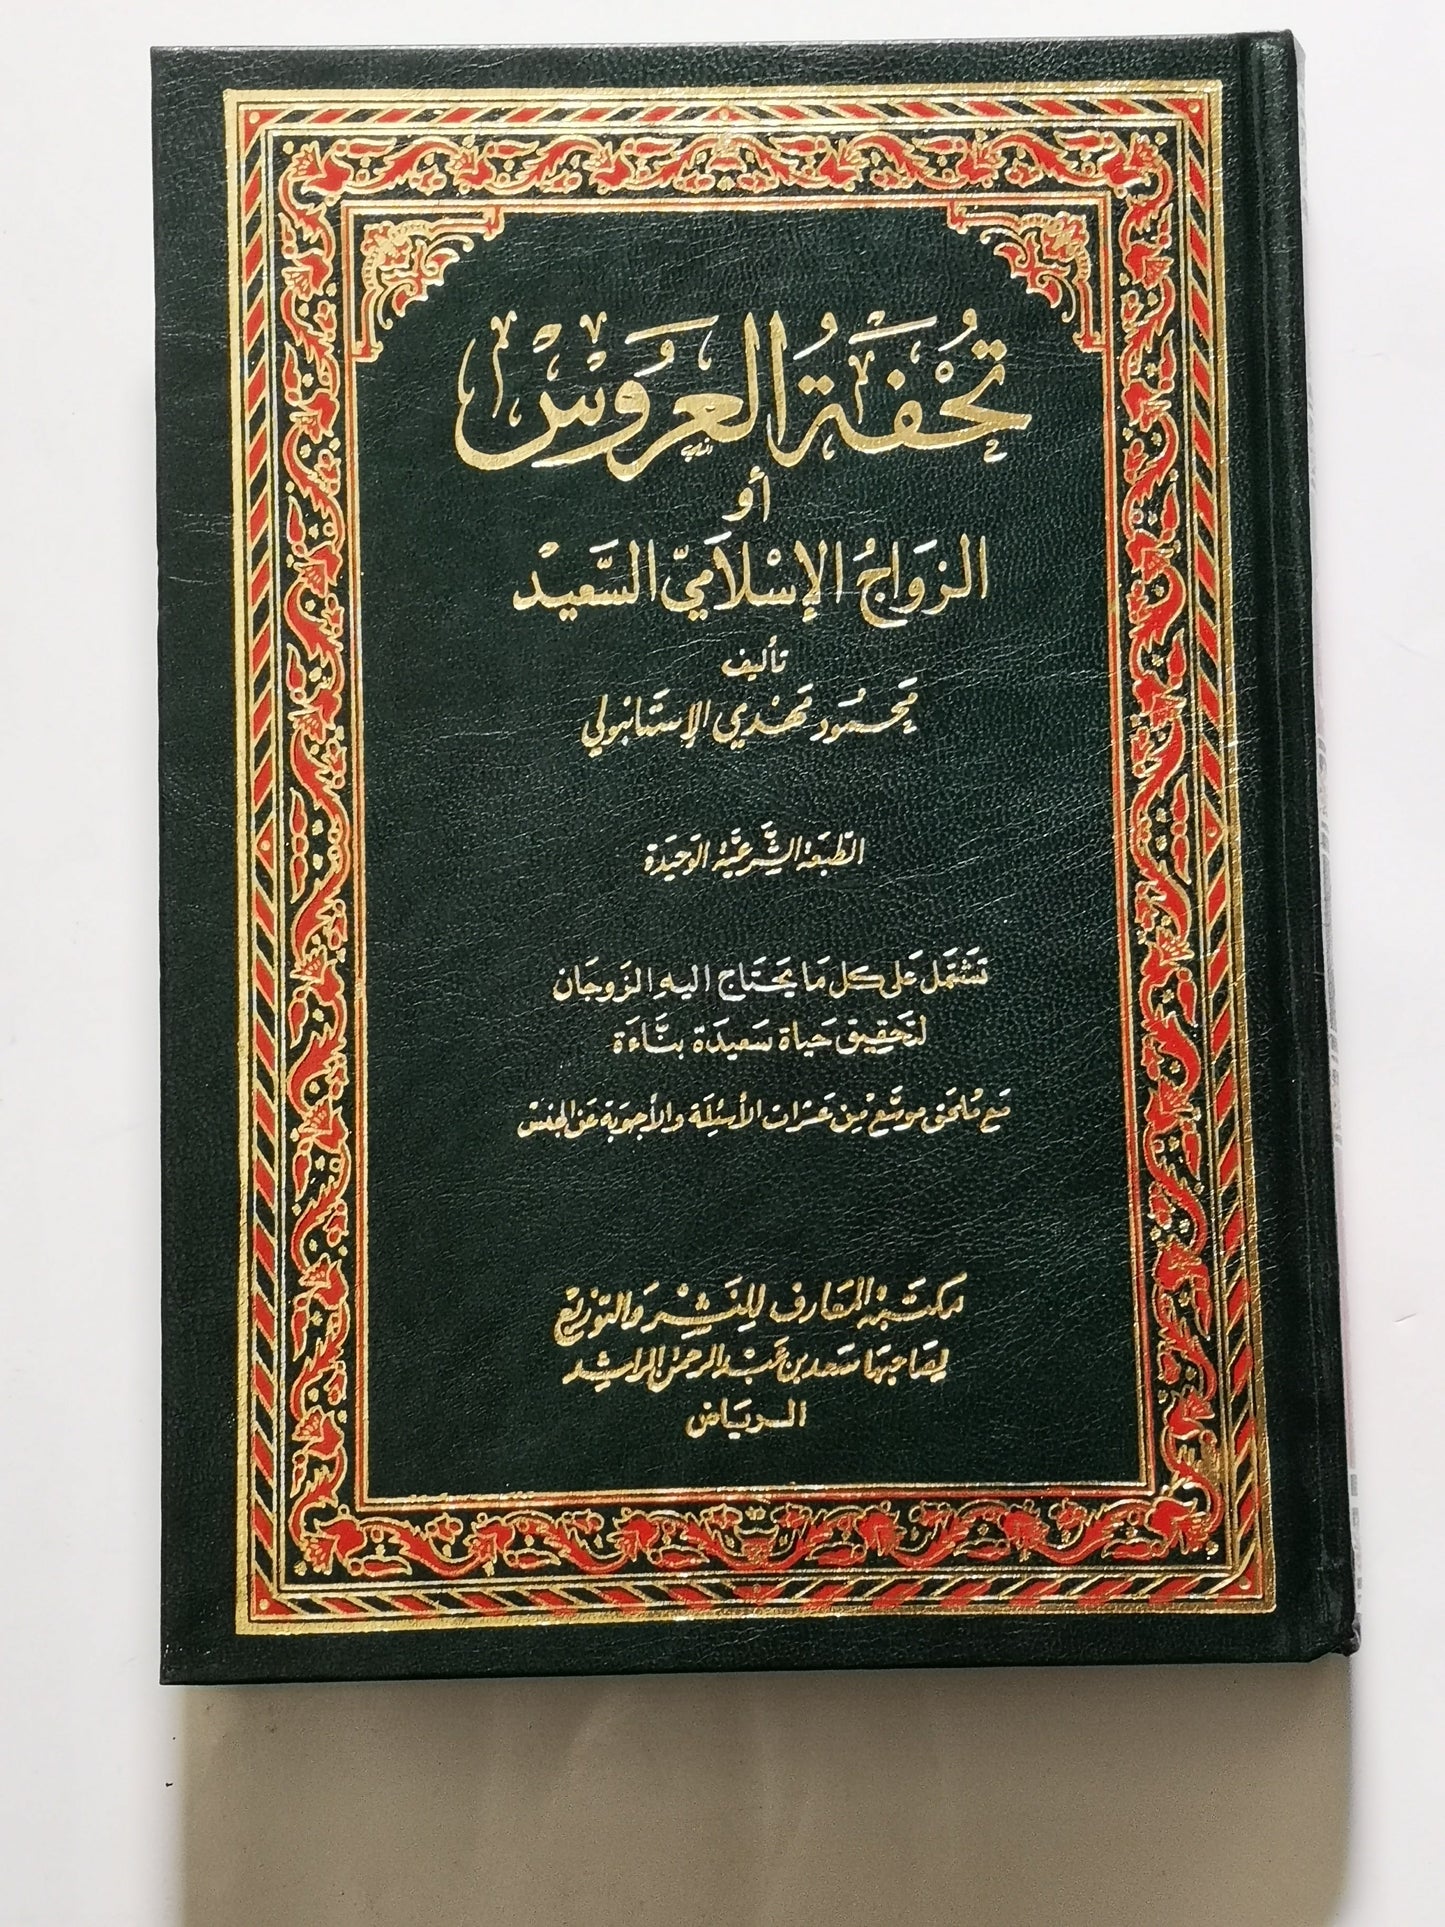 تُحْفَةُ العَرُوسْ
أو
الزوَاجُ الإسْلَاميّ السَّعيدْ
تأليف
مَحمُود مَهْدي الإستَانبولي
الطَّبعَة الشَّرعيَّة الوَحيدَة
تَشتَمل عَلى كل مَا يَحتَاج اليه الزَوجَان
لتَحقيق حَياة سَعيدَة بنَّاءَة
مَع مُلحَق موسَّعْ مِن عَشرات الأسئِلَة والأجوبَة عَن الجنسْ
مَكتَبة المَعَارف للِنَشْر وَالتوزيعْ
لِصَاحبهَا سَعد بن عَبْد الرحمٰن الراشِد
الريَاض